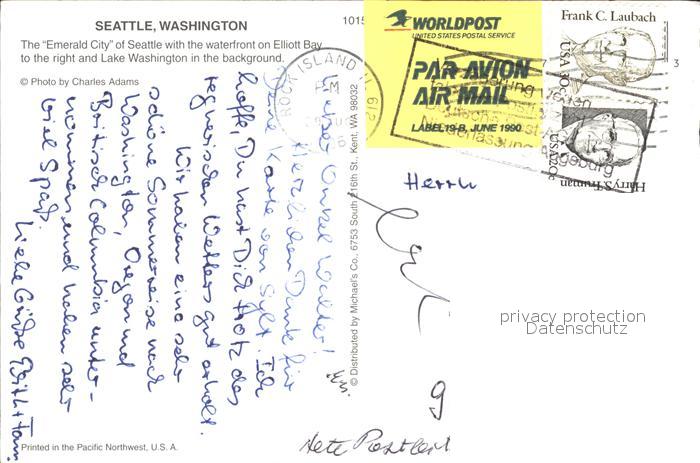 SEATTLE, WASHINGTON
The "Emerald City" of Seattle with the waterfront on Elliott Bay
to the right and Lake Washington in the background.
© Photo by Charles Adams
1015
Lieber Onkel Walter!
Herzlichen Dank für
Deine Karte von Sylt. Ich
hoffe, Du hast Dich trotz des
regnerischen Wetters gut erholt.
Wir haben eine sehr
schöne Sommerreise nach
Washington, Oregon und
British Columbia unter-
nommen und haben sehr
viel Spaß.
Liebe Grüße
Printed in the Pacific Northwest, U.S.A.
© Distributed by Michael's Co., 6753 South 216th St., Kent, WA 98032
ROCK ISLAND IL 612
PM
WORLDPOST
UNITED STATES POSTAL SERVICE
PAR AVION
AIR MAIL
LABEL 19-B, JUNE 1990
Frank C. Laubach
USA 30c
Harry S. Truman
USA 20c
3
Herrn
privacy protection
Datenschutz
9